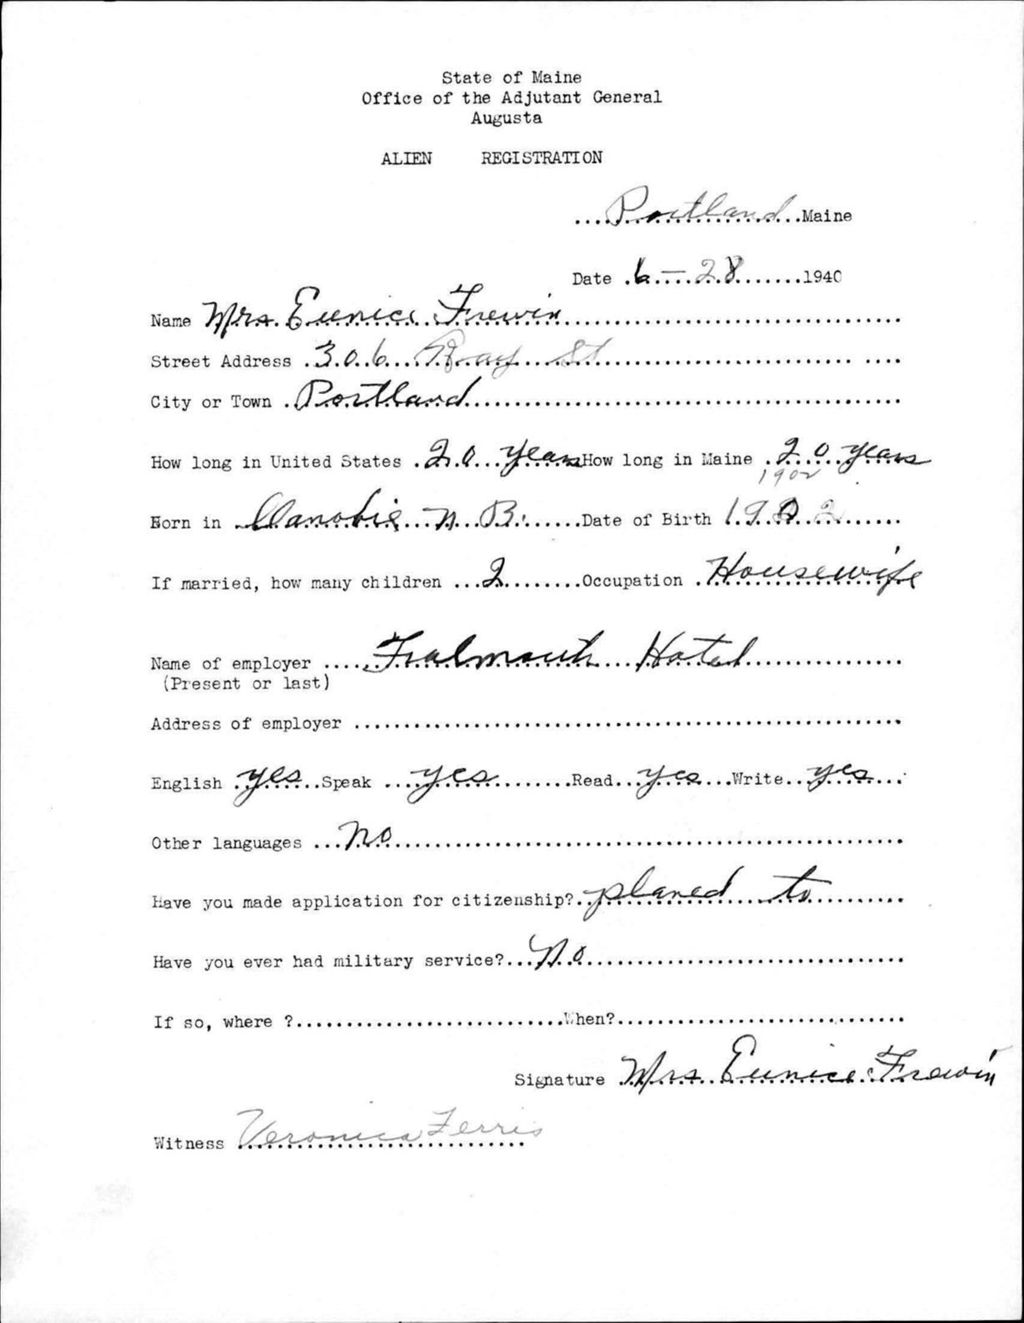 State of Maine
Office of the Adjutant General
Augusta
ALIEN REGISTRATION
Portland Maine
Date 6-28 1940
Name Mrs. Eunice Frewin
Street Address 306 Ray St
City or Town Portland
How long in United States 20 years How long in Maine 20 years
1902
Born in Canobie N. B. Date of Birth 1902
If married, how many children 2 Occupation Housewife
Name of employer Fralmouth Hotel
(Present or last)
Address of employer
English yes Speak yes Read yes Write yes
Other languages no
Have you made application for citizenship? planed to
Have you ever had military service? No
If so, where ? When?
Signature Mrs. Eunice Frewin
Witness Veronica Ferris